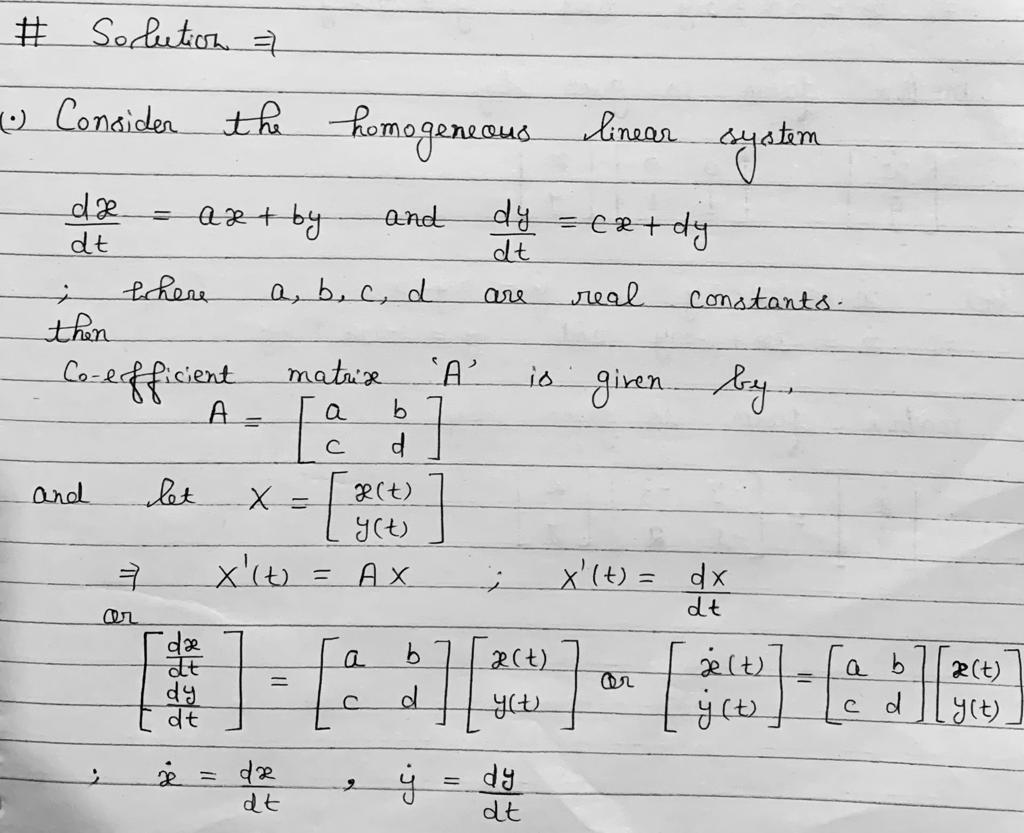 # Solution ⇒
(.) Consider the homogeneous linear system
dx/dt = ax + by and dy/dt = cx + dy
; where a, b, c, d are real constants.
then
Co-efficient matrix 'A' is given by,
A = [a b; c d]
and let X = [x(t); y(t)]
⇒ X'(t) = AX ; X'(t) = dX/dt
or
[dx/dt; dy/dt] = [a b; c d] [x(t); y(t)] or [ẋ(t); ẏ(t)] = [a b; c d] [x(t); y(t)]
; ẋ = dx/dt , ẏ = dy/dt